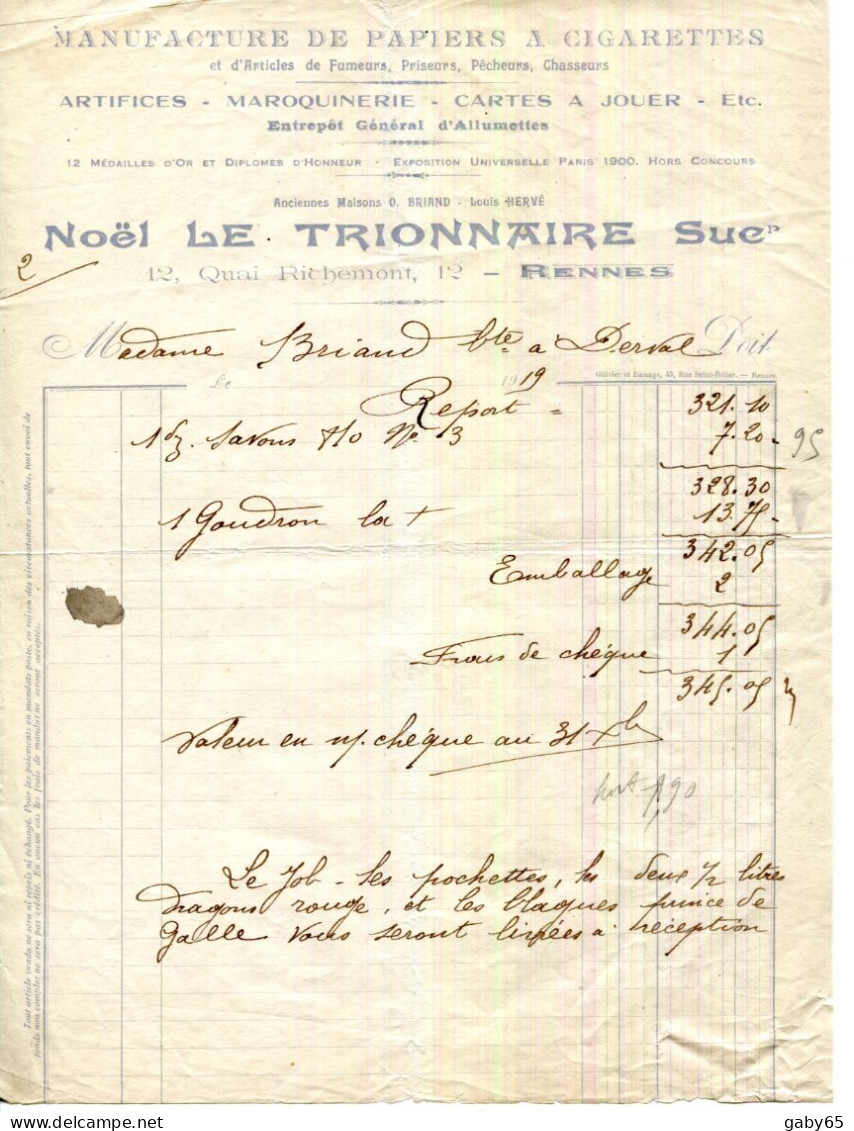 MANUFACTURE DE PAPIERS A CIGARETTES
et d'Articles de Fumeurs, Priseurs, Pêcheurs, Chasseurs
ARTIFICES - MAROQUINERIE - CARTES A JOUER - Etc.
Entrepôt Général d'Allumettes
12 MÉDAILLES D'OR ET DIPLOMES D'HONNEUR - EXPOSITION UNIVERSELLE PARIS 1900. HORS CONCOURS
Anciennes Maisons O. BRIAND - Louis HERVÉ
Noël LE TRIONNAIRE Sucr
2
12, Quai Richemont, 12 — RENNES
Madame Briand bte a Derval Doit
Ollivier et Ramage, 49, Rue Saint-Hélier. — Rennes
Le 1919
Report = 321.10
1 dz. Savons No 3 7.20 95
328.30
1 Goudron la + 13.75
342.05
Emballage 2
344.05
Frais de chéque 1
345.05
Valeur en n/. chéque au 31 Xb
90
Le Job - les pochettes, les deux 1/2 litres
dragons rouge, et les blagues
Galle vous seront livrées a réception
Tout article vendu ne sera ni repris ni échangé. Pour les paiements en mandats poste, en raison des circonstances actuelles, tout envoi de
fonds non complet ne sera pas crédité. En aucun cas les frais de mandat ne seront acceptés.
delcampe.net
gaby65